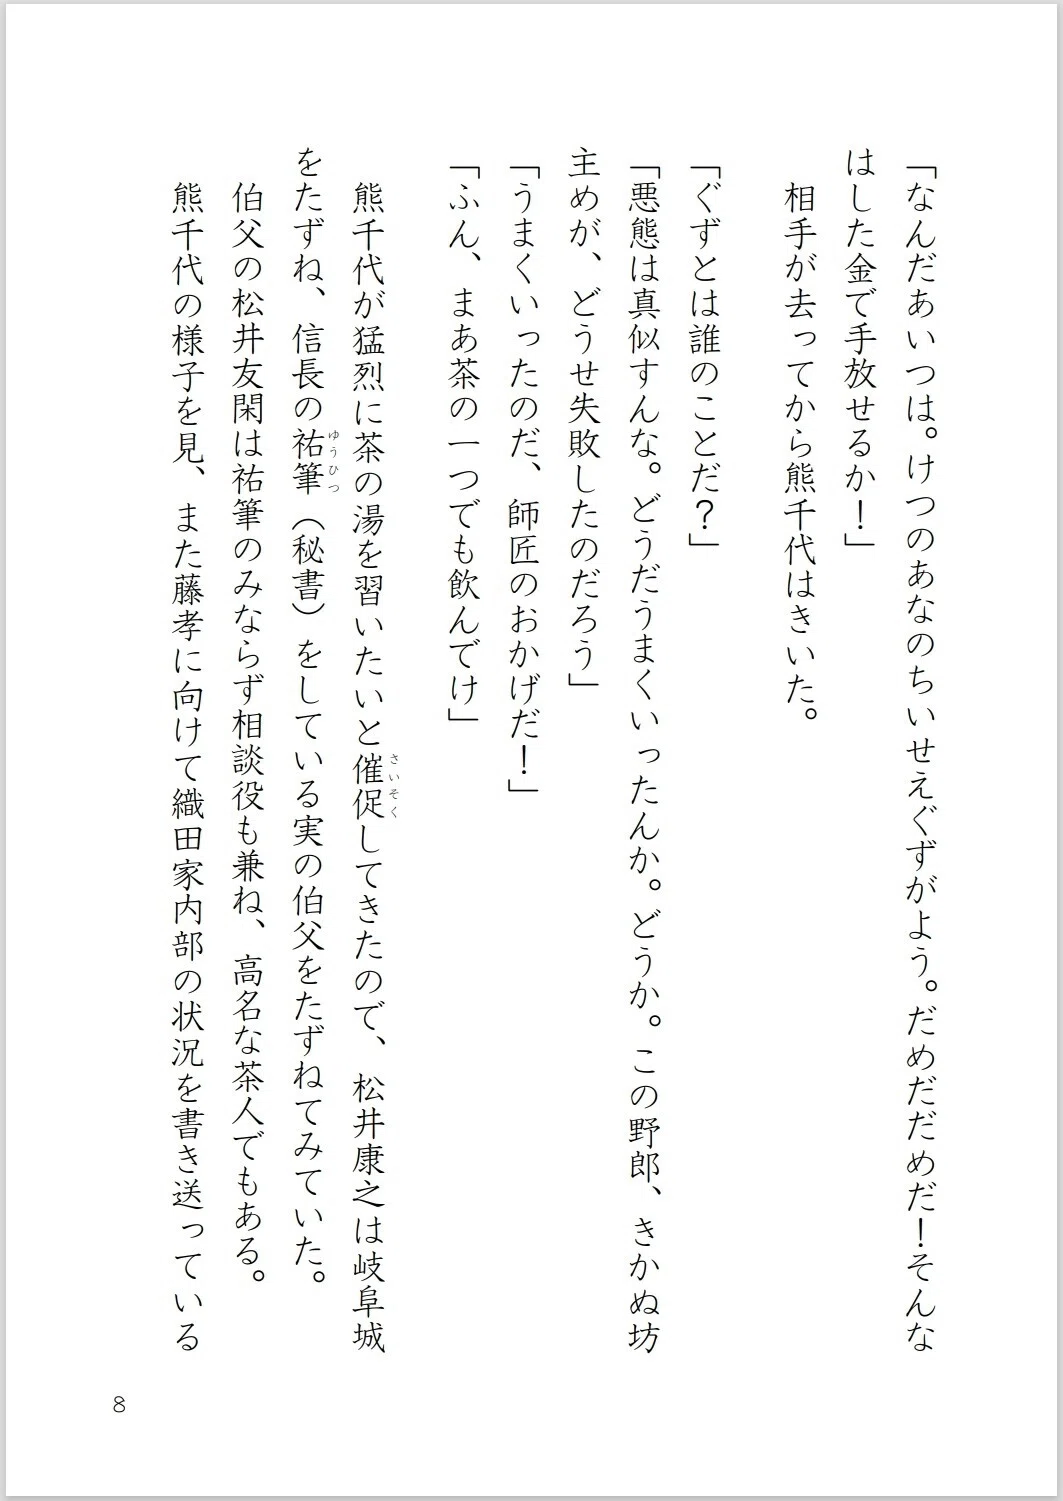 「なんだあいつは。けつのあなのちいせえぐずがよう。だめだだめだ！そんな
はした金で手放せるか！」
　相手が去ってから熊千代はきいた。
「ぐずとは誰のことだ？」
「悪態は真似すんな。どうだうまくいったんか。どうか。この野郎、きかぬ坊
主めが、どうせ失敗したのだろう」
「うまくいったのだ、師匠のおかげだ！」
「ふん、まあ茶の一つでも飲んでけ」
　熊千代が猛烈に茶の湯を習いたいと催促してきたので、松井康之は岐阜城
さいそく
をたずね、信長の祐筆（秘書）をしている実の伯父をたずねてみていた。
ゆうひつ
　伯父の松井友閑は祐筆のみならず相談役も兼ね、高名な茶人でもある。
　熊千代の様子を見、また藤孝に向けて織田家内部の状況を書き送っている
8